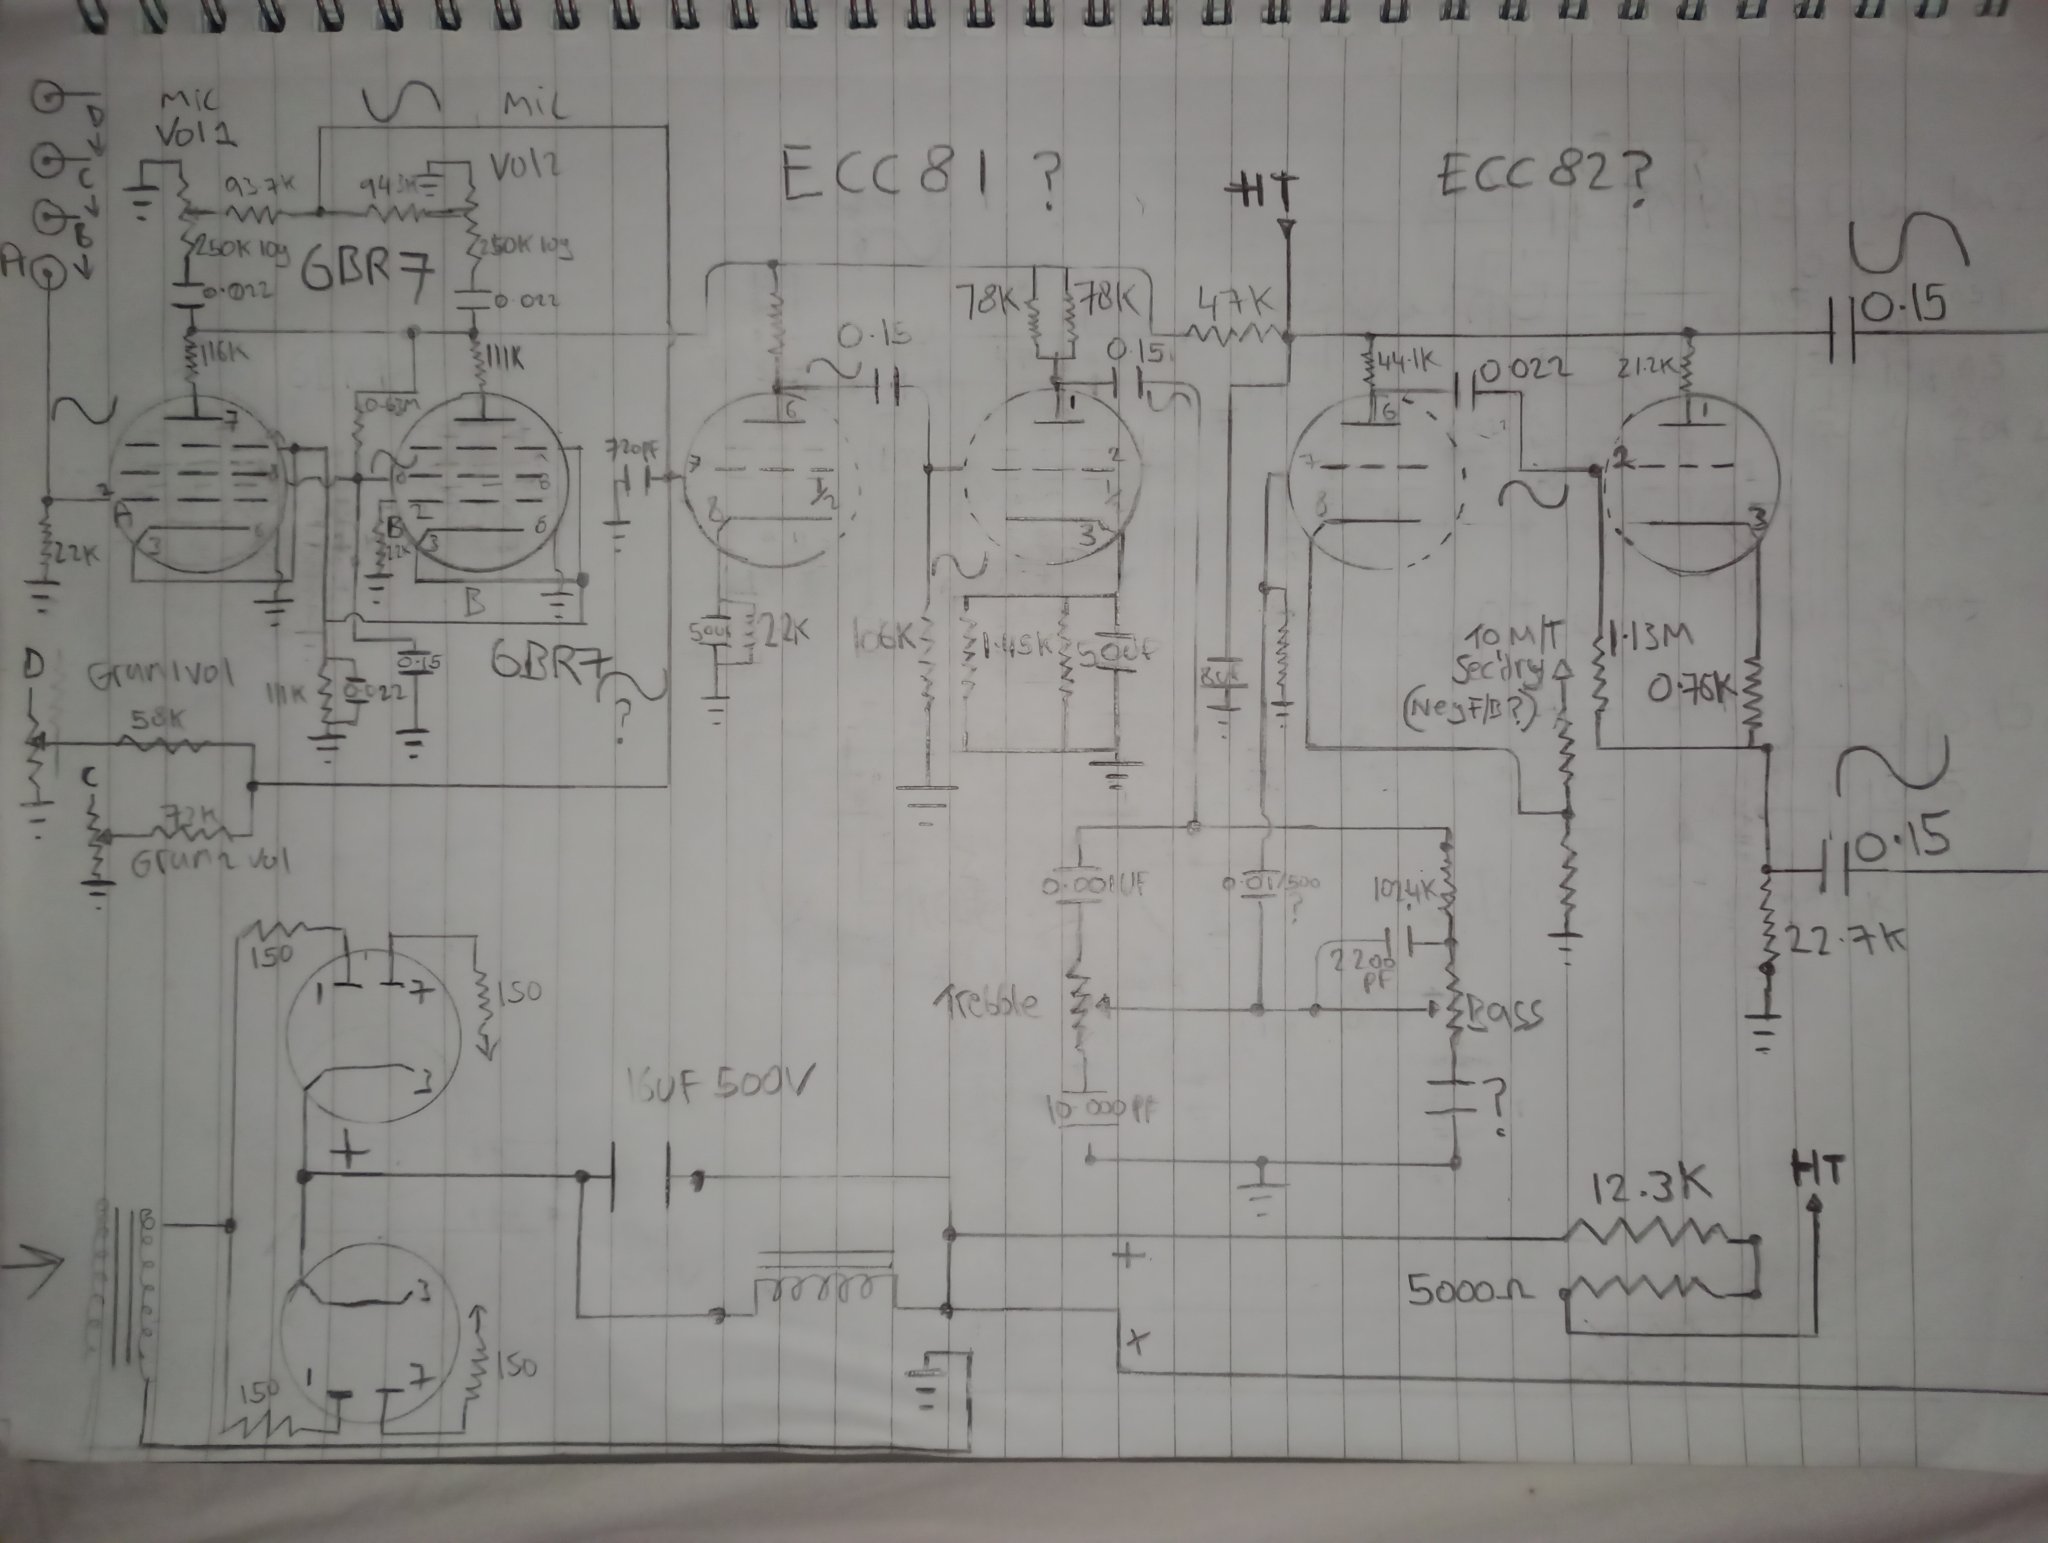 Mic
Vol 1
Mic
Vol2
93.7K
943K
250K log
6BR7
250K log
0.022
0.022
ECC 81 ?
HT
ECC 82?
A
B
C
D
116K
111K
0.15
78K
78K
0.15
47K
44.1K
0.022
21.2K
0.15
7
2
A
3
22K
720PF
8
2
B
3
22K
6
8
B
7
6
1/2
8
1
2
3
7
6
8
1
2
3
50UF
22K
6BR7
?
106K
1.45K
50UF
TO M/T
Sec'dry
(Neg F/B?)
1.13M
0.76K
D
Gram1vol
58K
111K
0.022
0.15
C
72K
Gram2 vol
0.15
22.7K
0.001UF
0.01/500
?
102.4K
2200
PF
Trebble
Bass
10.000PF
?
150
1
7
150
3
+
16UF 500V
3
1
7
150
150
+
+
12.3K
5000Ω
HT